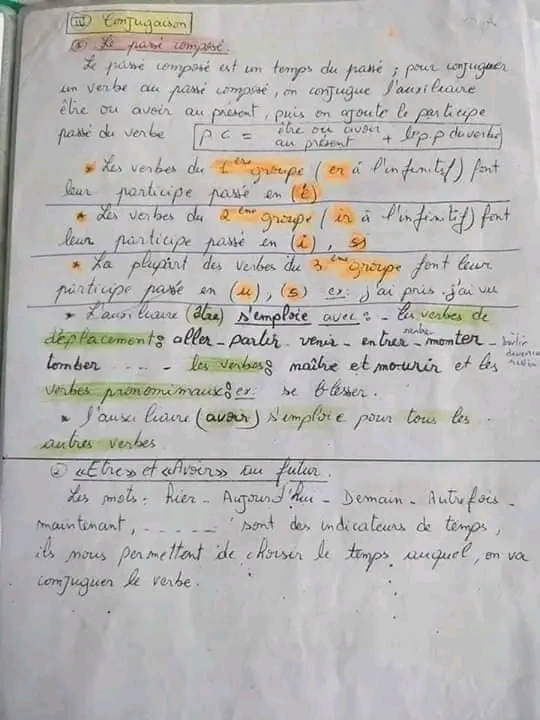 III Conjugaison
① Le passé composé.
Le passé composé est un temps du passé ; pour conjuguer
un verbe au passé composé, on conjugue l'auxiliaire
être ou avoir au présent, puis on ajoute le participe
passé du verbe p c = être ou avoir au présent + le p.p du verbe
* Les verbes du 1ère groupe (er à l'infinitif) font
leur participe passé en (é)
* Les verbes du 2ème groupe (ir à l'infinitif) font
leur participe passé en (i), s)
* La plupart des verbes du 3ème groupe font leur
participe passé en (u), (s) ex: j'ai pris. j'ai vu
* L'auxiliaire (être) s'emploie avec : - les verbes de
déplacement : aller - partir - venir - entrer - monter -
tomber - - - - les verbes : naître et mourir et les
verbes pronominaux : ex: se blesser.
* l'auxiliaire (avoir) s'emploie pour tous les
autres verbes.
② «Etre» et «Avoir» au futur.
Les mots : hier - Aujourd'hui - Demain - Autrefois -
maintenant, - - - - - sont des indicateurs de temps,
ils nous permettent de choisir le temps auquel, on va
conjuguer le verbe.